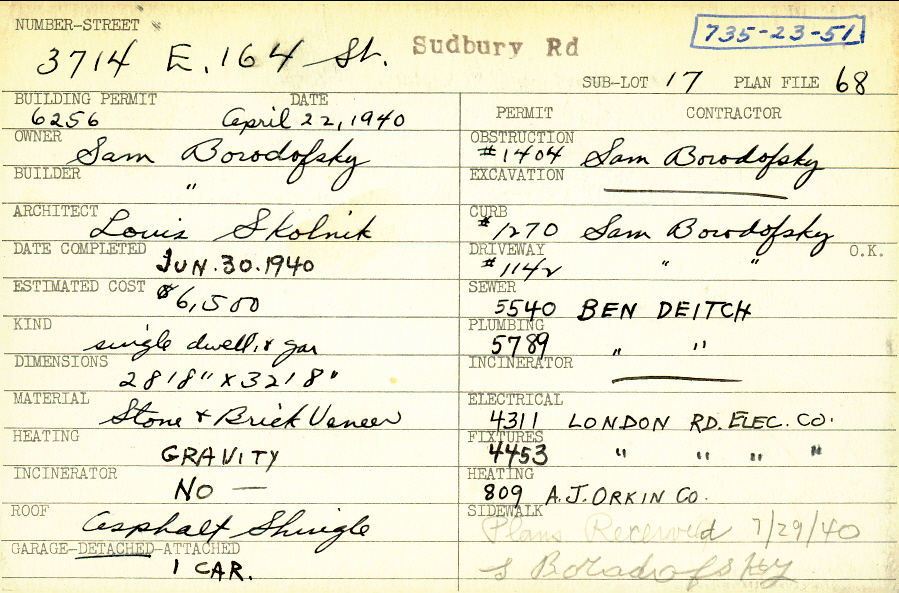 NUMBER-STREET
3714 E. 164 St. Sudbury Rd
735-23-51
SUB-LOT 17 PLAN FILE 68
BUILDING PERMIT DATE
6256 April 22, 1940
OWNER
Sam Borodofsky
BUILDER
"
ARCHITECT
Louis Skolnik
DATE COMPLETED
JUN.30.1940
ESTIMATED COST
$6,500
KIND
single dwell. & gar
DIMENSIONS
28'8" x 32'8"
MATERIAL
Stone & Brick Veneer
HEATING
GRAVITY
INCINERATOR
NO —
ROOF
Asphalt Shingle
GARAGE-DETACHED-ATTACHED
1 CAR.
PERMIT CONTRACTOR
OBSTRUCTION
#1404 Sam Borodofsky
EXCAVATION
CURB
#1270 Sam Borodofsky
DRIVEWAY O.K.
#1142 " "
SEWER
5540 BEN DEITCH
PLUMBING
5789 " "
INCINERATOR
ELECTRICAL
4311 LONDON RD. ELEC. CO.
FIXTURES
4453 " " " "
HEATING
809 A.J. ORKIN CO.
SIDEWALK
Plans Received 7/29/40
S Boradofsky